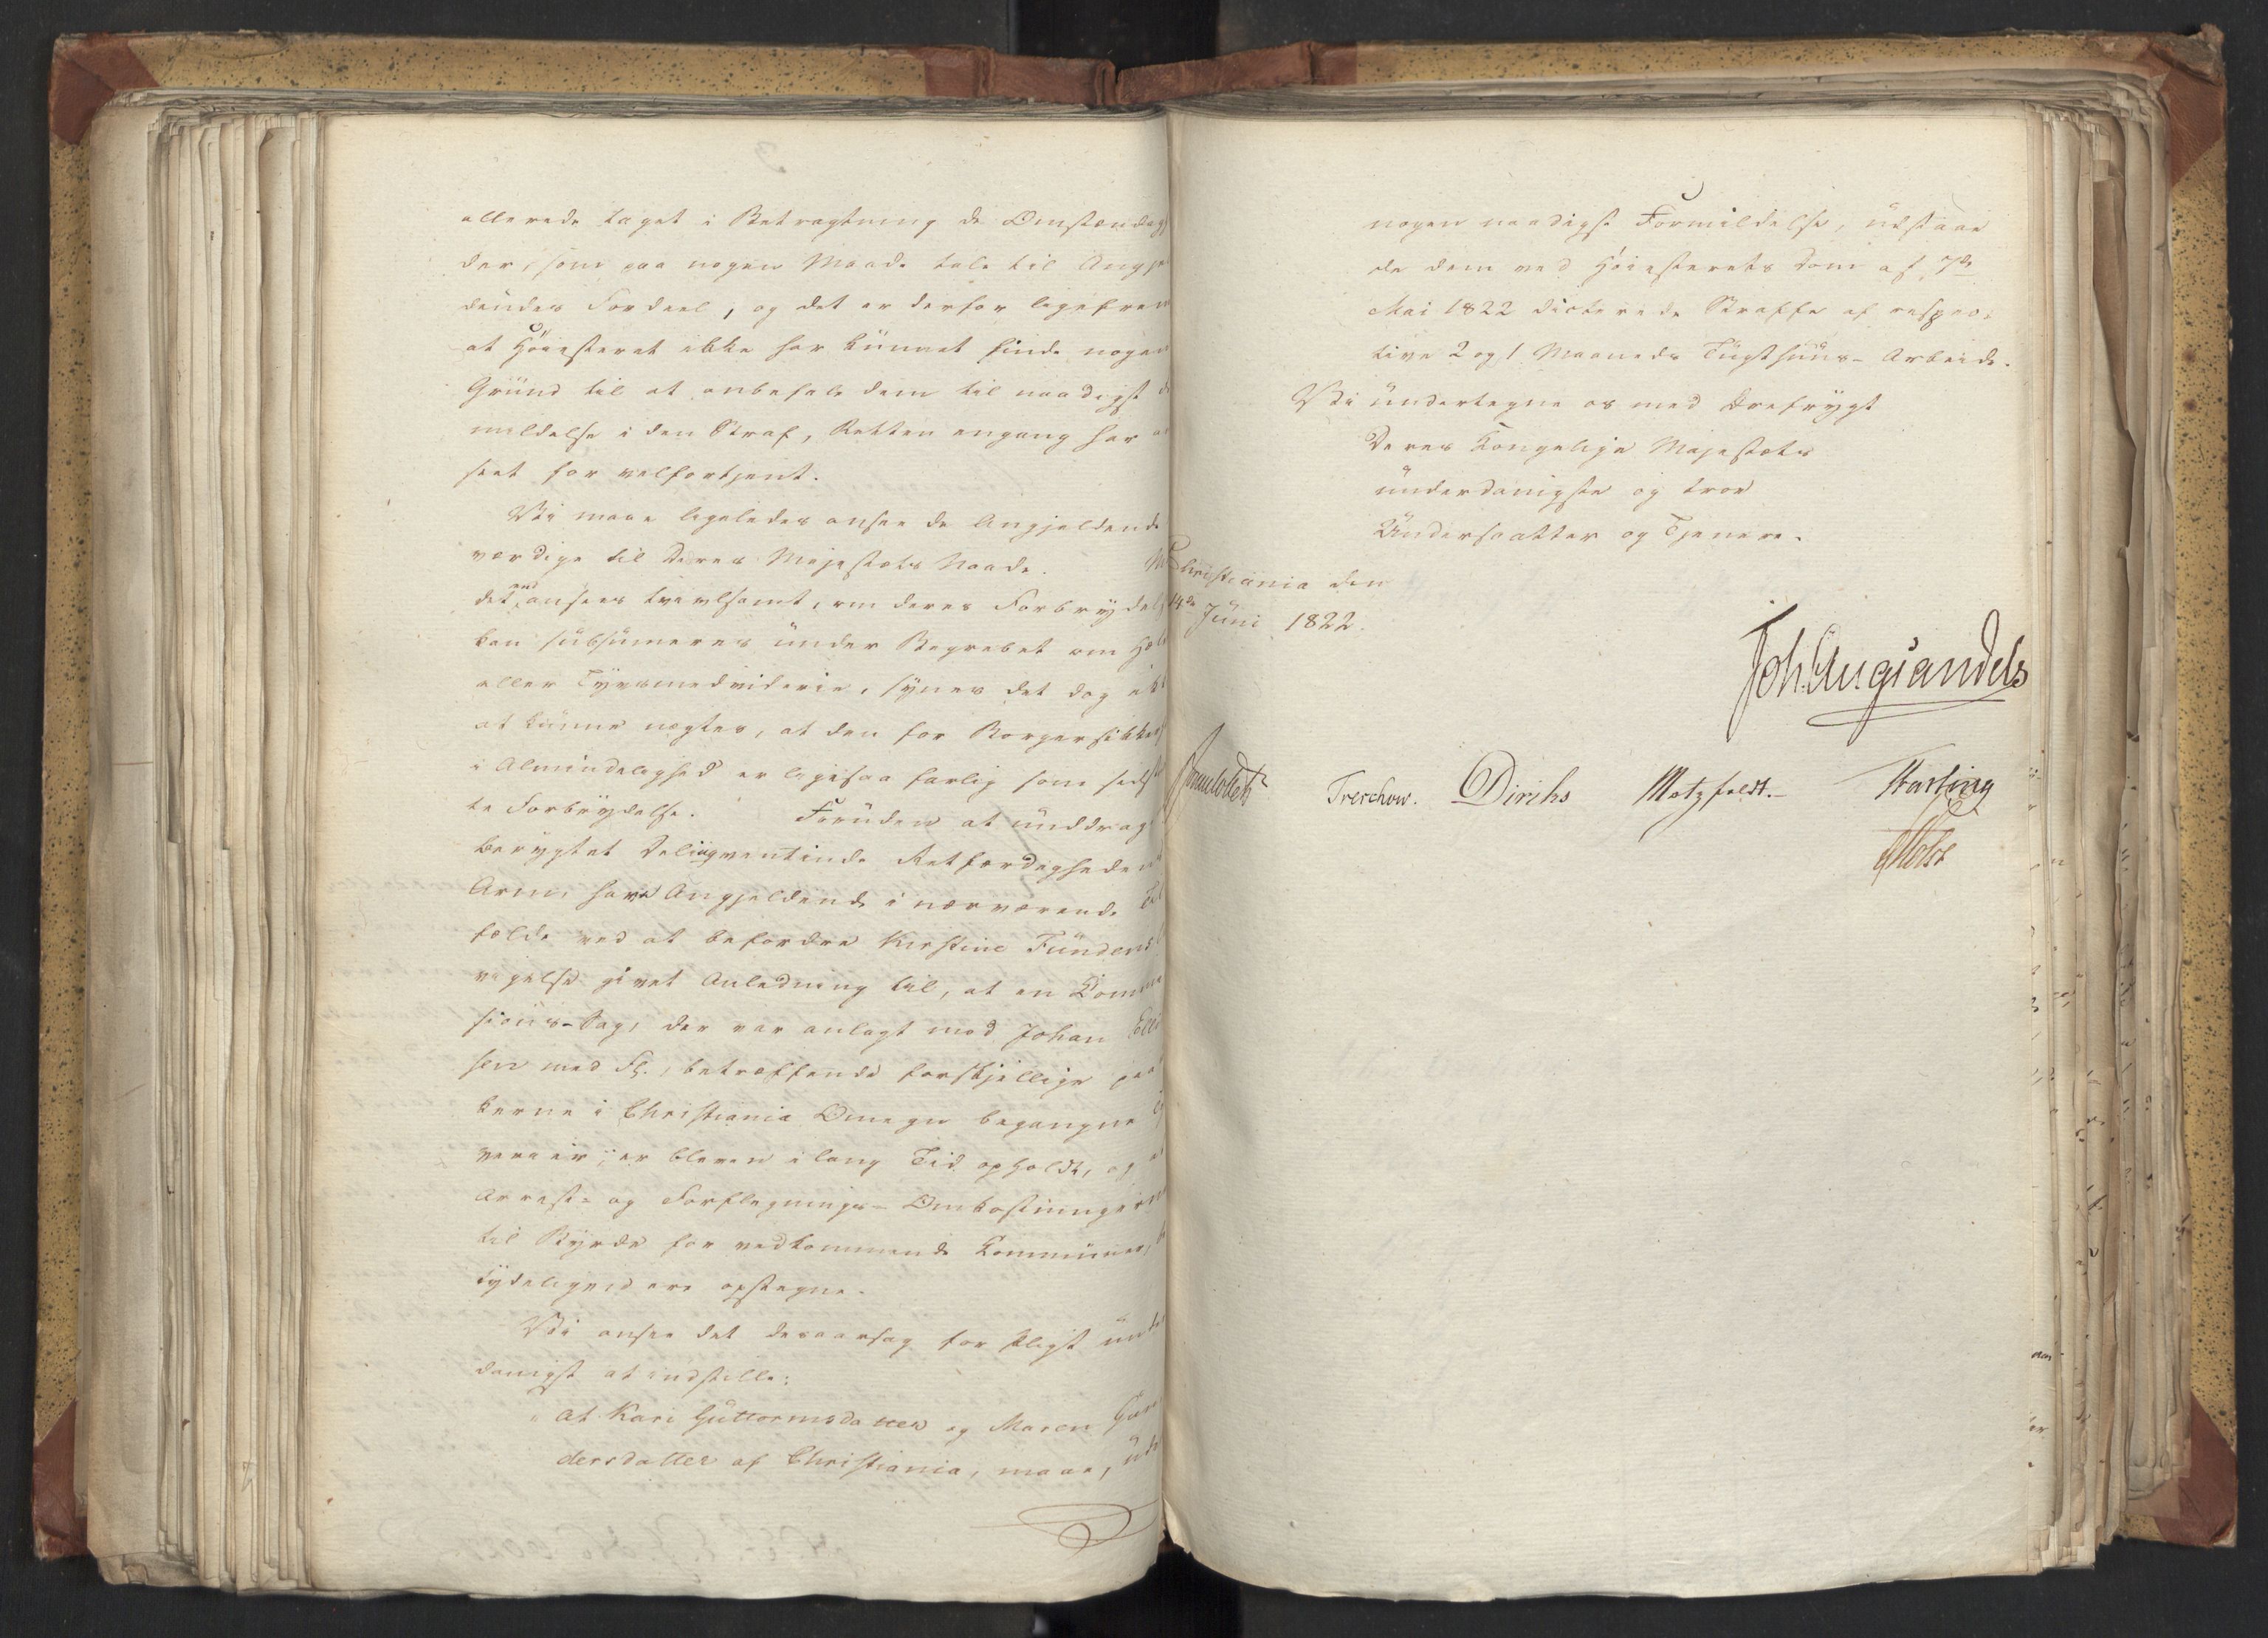 allerede taget i Betragtning de Omstændig
der, som paa nogen Maade tale til Angjel
dendes Fordeel, og det er derfor ligefrem
at Høiesteret ikke har kunnet finde nogen
Grund til at anbefale dem til naadigst
mildelse i den Straf, Retten engang har
seet for velfortjent.
Vi maae ligeledes ansee de Angjeldende
værdige til Deres Majestæts Naade.
det end ansees tvivlsomt, om deres Forbrydels
kan subsumeres under Begrebet om Hæle
eller Tyvsmedviderie, synes det dog ikk
at kunne nægtes, at den for Borgersikkerh
i Almindelighed er ligesaa farlig som sidst
te Forbrydelse. Foruden at unddrage
berygtet Delinqventinde Retfærdighedens
Arm, have Angjeldende i nærværende Til
fælde ved at befordre Kirstine Fundens
vigelse givet Anledning til, at en Commis
sions-Sag, der var anlagt mod Johan
sen med Fl., betræffende forskjellige paa
kerne i Christiania Omegn begangne
verier, er bleven i lang Tid opholdt, og at
Arrest- og Forflegnings-Omkostningerne
til Byrde for vedkommende Kommuner,
tydeligviis ere opstegne.
Vi ansee det desaarsag for Pligt under
danigst at indstille:
at Kari Guttormsdatter og Maren Gun
dersdatter af Christiania, maae, uden
nogen naadigst Formildelse, udstaae
de dem ved Høiesterets Dom af 7de
Mai 1822 dicterede Straffe af respec-
tive 2 og 1 Maaneds Tugthuus-Arbeide.
Vi undertegne os med Ærefrygt
Deres Kongelige Majestæts
underdanigste og troe
Undersaatter og Tjenere.
Christiania den
14de Juni 1822.
Joh. Aug. Sandels
Sommerhielm Treschow. Diriks Motzfeldt. Fasting
Holst